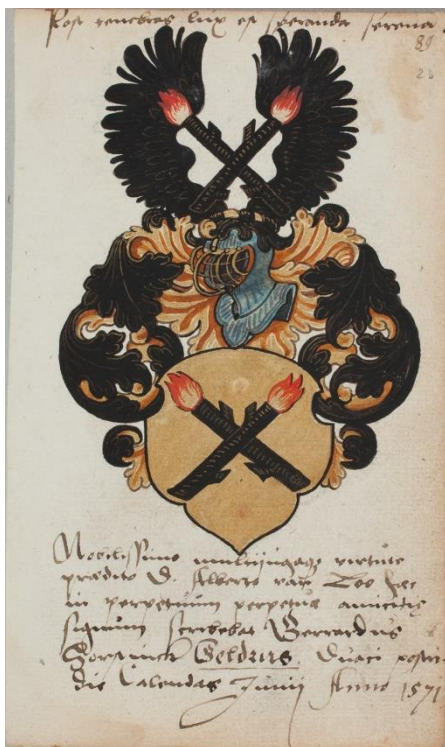 Post tenebras lux est speranda serena.
89
22
Nobilissimo multijugaq virtute
prædito D. Alberto van Loo hoc
in perpetuum perpetuæ amicitiæ
signum scribebat Gerrardus
Geldrus. Duaci postri-
die Calendas Junij Anno 1571